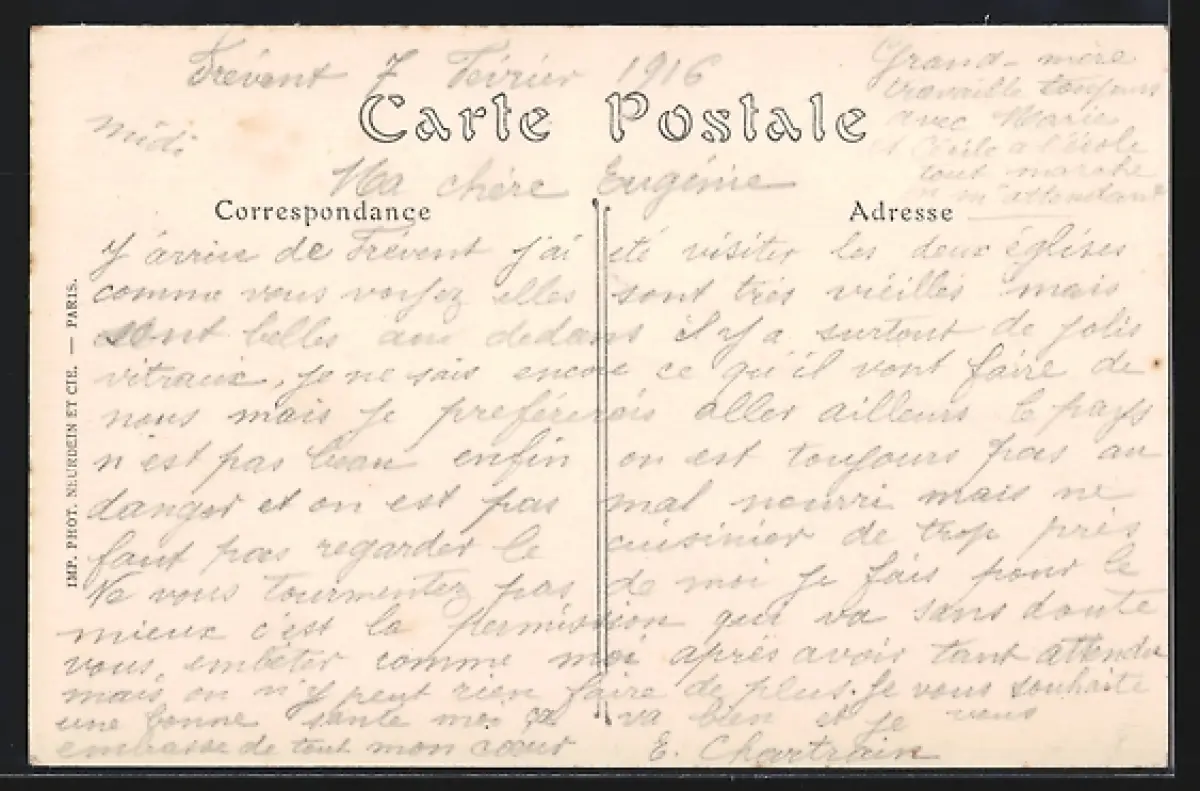 Frévent 7 Février 1916
Carte Postale
Midi
Grand-mère
travaille toujours
avec Marie
et à l'école
tout marche
m'attendant
Ma chère Eugénie
Correspondance
Adresse
J'arrive de Frévent j'ai été visiter les deux églises
comme vous voyez elles sont très vieilles mais
sont belles au dedans il y a surtout de jolis
vitraux, je ne sais encore ce qu'il vont faire de
nous mais je préférerais aller ailleurs le pays
n'est pas beau enfin on est toujours pas au
danger et on est pas mal nourri mais ne
faut pas regarder le cuisinier de trop près
Ne vous tourmentez pas de moi je fais pour le
mieux c'est la permission qui va sans doute
vous embêter comme moi après avoir tant attendu
mais on n'y peut rien faire de plus. Je vous souhaite
une bonne santé moi ça va bien et je vous
embrasse de tout mon cœur E. Chartrain
IMP. PHOT. NEURDEIN ET CIE. — PARIS.